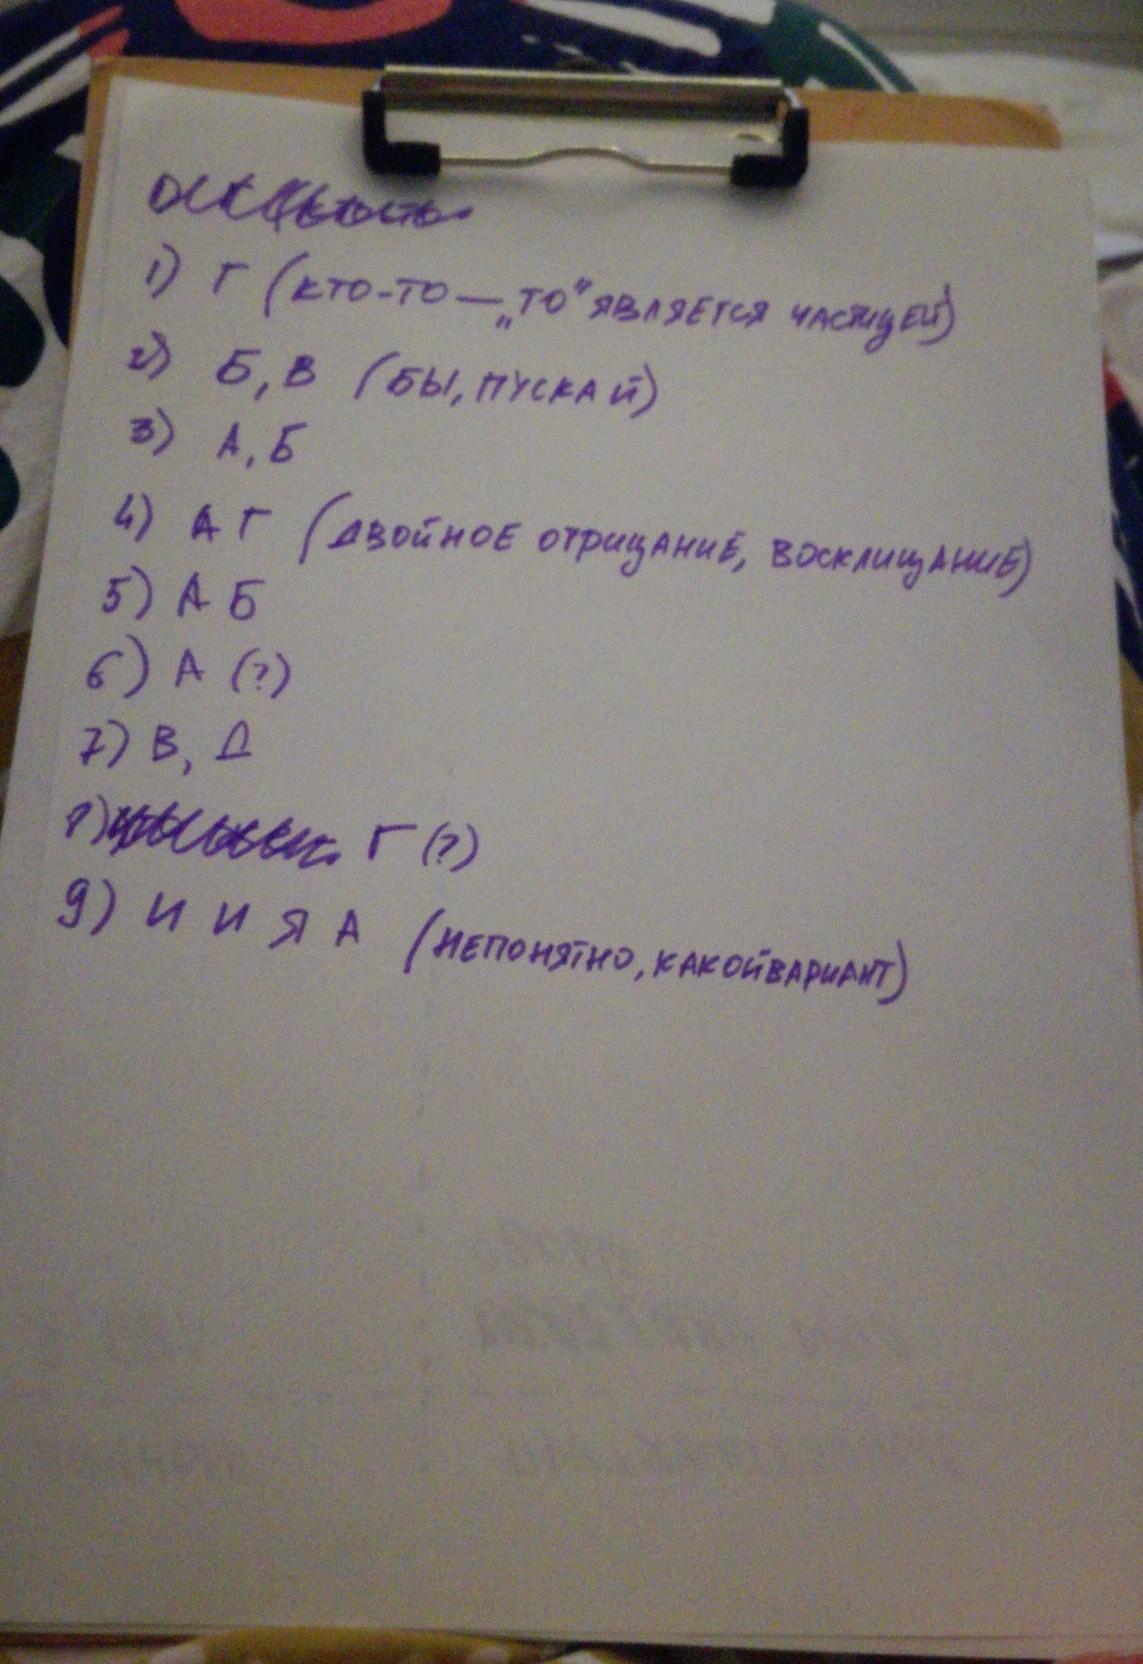 1) Г (кто-то — „то" является частицей)
2) Б, В (бы, пускай)
3) А, Б
4) А Г (двойное отрицание, восклицание)
5) А Б
6) А (?)
7) В, Д
8) Г (?)
9) И И Я А (непонятно, какой вариант)